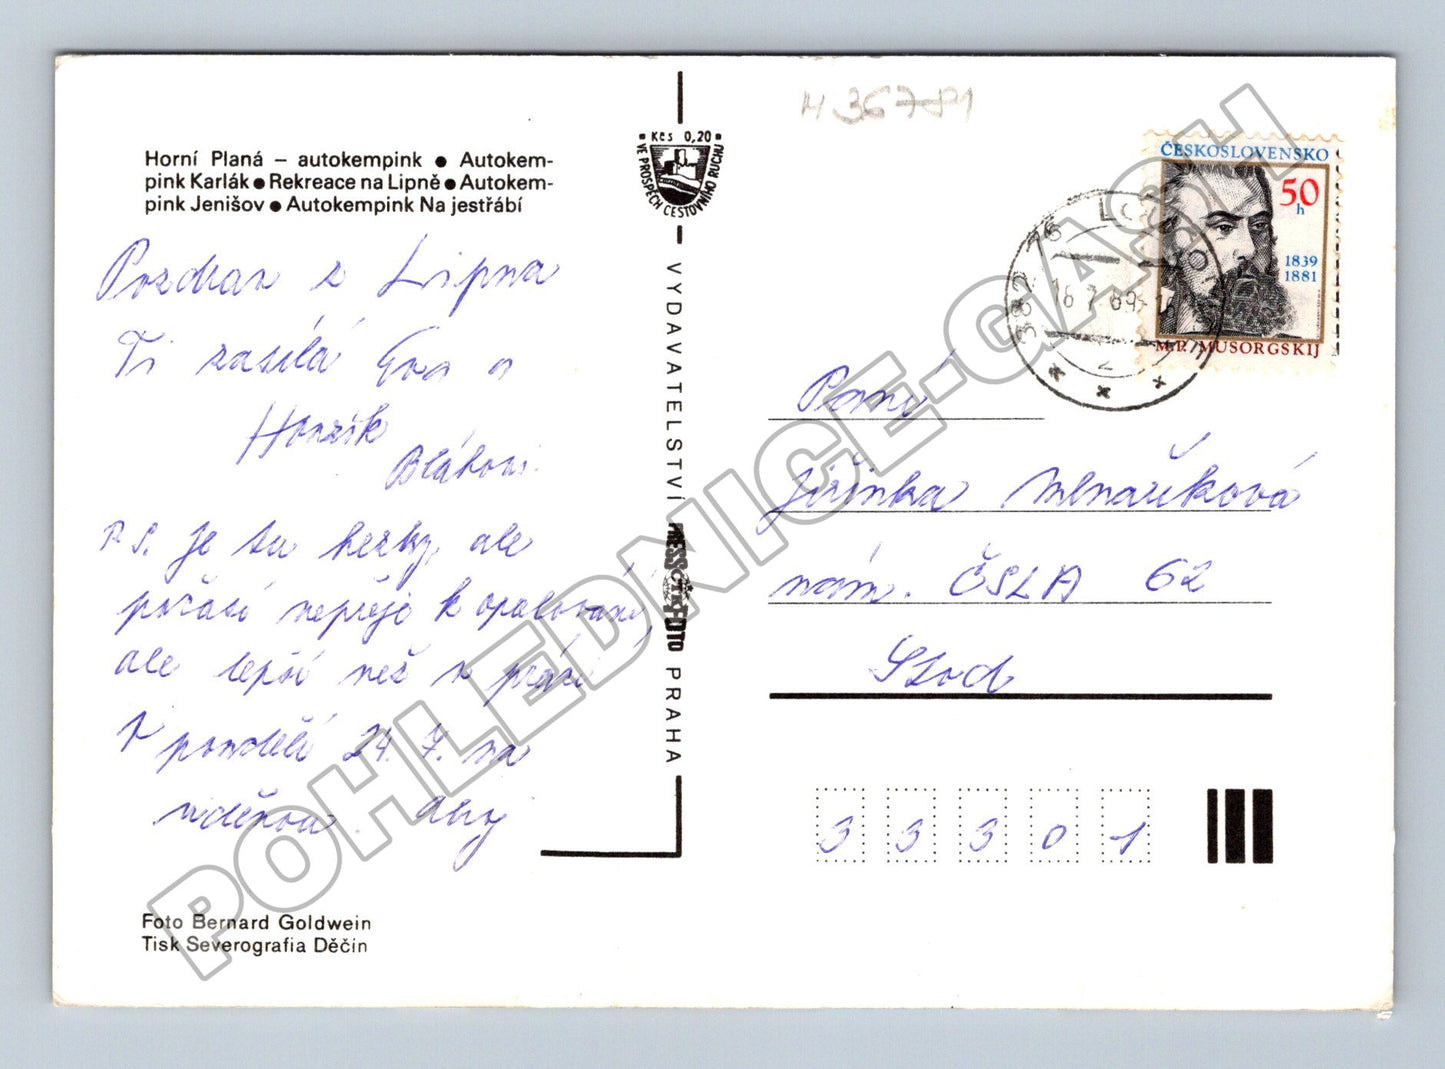 Horní Planá – autokempink ● Autokem-
pink Karlák ● Rekreace na Lipně ● Autokem-
pink Jenišov ● Autokempink Na jestřábí
Pozdrav z Lipna
Ti zasílá Eva a
Honzík
Bláhovi
P.S. je tu hezky, ale
počasí nepřeje k opalování,
ale lepší než v práci
V pondělí 24. 7. na
viděnou Ahoj
Foto Bernard Goldwein
Tisk Severografia Děčín
Kčs 0,20
VE PROSPĚCH CESTOVNÍHO RUCHU
VYDAVATELSTVÍ PRESSFOTO PRAHA
ČTK
ČESKOSLOVENSKO
50
h
1839
1881
M. P. MUSORGSKIJ
382 76
Paní
Jiřinka Mlnaříková
nám. ČSLA 62
Stod
3 3 3 0 1
POHLEDNICE-GASH